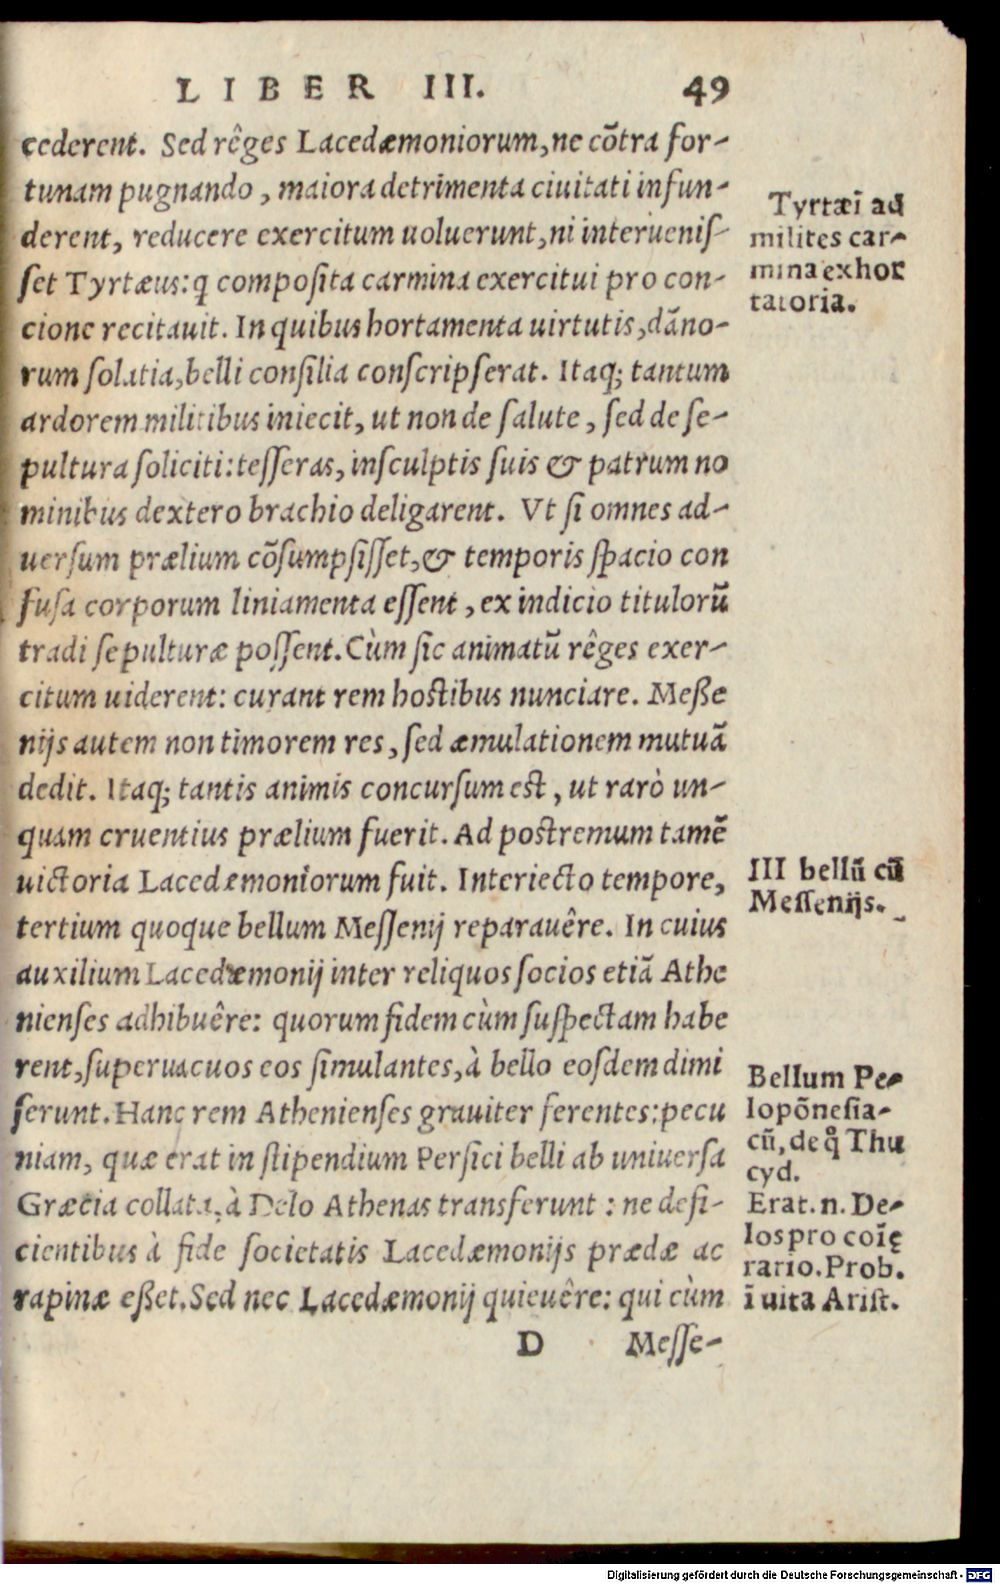 LIBER III. 49
cederent. Sed rêges Lacedæmoniorum, ne cõtra for-
tunam pugnando, maiora detrimenta ciuitati infun-
derent, reducere exercitum uoluerunt, ni interuenis-
set Tyrtæus: q composita carmina exercitui pro con-
cione recitauit. In quibus hortamenta uirtutis, dãno-
rum solatia, belli consilia conscripserat. Itaq; tantum
ardorem militibus iniecit, ut non de salute, sed de se-
pultura soliciti: tesseras, insculptis suis & patrum no
minibus dextero brachio deligarent. Vt si omnes ad-
uersum prælium cõsumpsisset, & temporis spacio con
fusa corporum liniamenta essent, ex indicio titulorũ
tradi sepulturæ possent. Cùm sic animatũ rêges exer-
citum uiderent: curant rem hostibus nunciare. Meße
nijs autem non timorem res, sed æmulationem mutuã
dedit. Itaq; tantis animis concursum est, ut rarò un-
quam cruentius prælium fuerit. Ad postremum tamẽ
uictoria Lacedæmoniorum fuit. Interiecto tempore,
tertium quoque bellum Messenij reparauêre. In cuius
auxilium Lacedæmonij inter reliquos socios etiã Athe
nienses adhibuêre: quorum fidem cùm suspectam habe
rent, superuacuos eos simulantes, à bello eosdem dimi
serunt. Hanc rem Athenienses grauiter ferentes: pecu
niam, quæ erat in stipendium Persici belli ab uniuersa
Græcia collata, à Delo Athenas transferunt: ne defi-
cientibus à fide societatis Lacedæmonijs prædæ ac
rapinæ eßet. Sed nec Lacedæmonij quieuêre: qui cùm
D Messe-
Tyrtæĩ ad
milites car-
mina exhor
tatoria.
III bellũ cũ
Messenijs.
Bellum Pe-
lopõnesia-
cũ, de q̊ Thu
cyd.
Erat. n. De-
los pro coĩę
rario. Prob.
ĩ uita Arist.
Digitalisierung gefördert durch die Deutsche Forschungsgemeinschaft - DFG